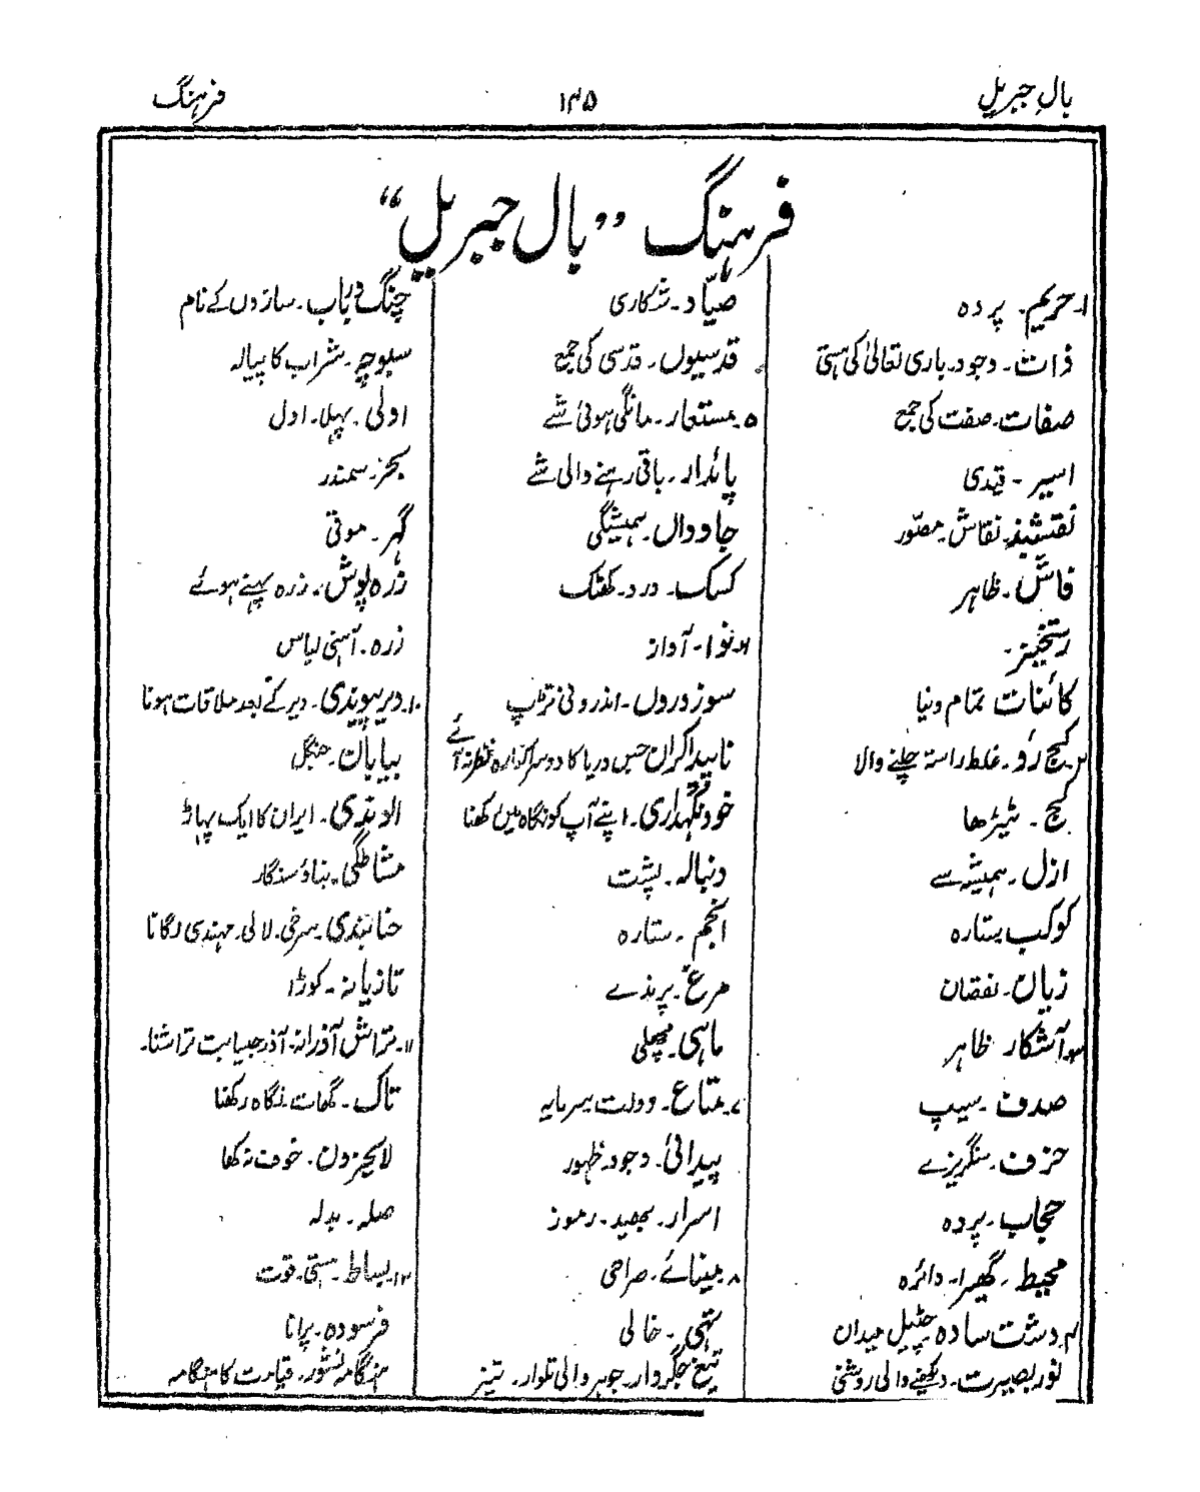 بالِ جبریل
۱۴۵
فرہنگ
فرہنگ ”بال جبریل“
۱۔ حریم۔ پردہ
ذات۔ وجود۔ باری تعالیٰ کی ہستی
صفات۔ صفت کی جمع
اسیر۔ قیدی
نقشبند۔ نقاش۔ مصّور
فاش۔ ظاہر
رستخیز۔
کائنات تمام دنیا
۲۔ کج رَو۔ غلط راستہ چلنے والا
کج۔ ٹیڑھا
ازل۔ ہمیشہ سے
کوکب ستارہ
زیاں۔ نقصان
۳۔ آشکار ظاہر
صدف۔ سیپ
خزف۔ سنگریزے
حجاب۔ پردہ
محیط۔ گھیرا۔ دائرہ
۴۔ دشت سادہ چٹیل میدان
نور بصیرت۔ دیکھنے والی روشنی
صیّاد۔ شکاری
قدسیوں۔ قدسی کی جمع
۵۔ مستعار۔ مانگی ہوئی شے
پائدار۔ باقی رہنے والی شے
جاوداں۔ ہمیشگی
کسک۔ درد۔ کھٹک
۶۔ نوا۔ آواز
سوز دروں۔ اندرونی تڑپ
ناپیدا کراں جس دریا کا دوسرا کنارہ نظر نہ آئے
خود نگہداری۔ اپنے آپ کو نگاہ میں رکھنا
دنبالہ۔ پشت
انجم۔ ستارہ
مرغ۔ پرندے
ماہی۔ مچھلی
۷۔ متاع۔ دولت سرمایہ
پیدائی۔ وجود۔ ظہور
اسرار۔ بھید۔ رموز
۸۔ مینائے۔ صراحی
تہی۔ خالی
تیغ جگردار۔ جوہر والی تلوار۔ تیز
چنگ و رباب۔ سازوں کے نام
سبوچہ۔ شراب کا پیالہ
اولیٰ۔ پہلا۔ اول
بحر۔ سمندر
گہر۔ موتی
زرہ پوش۔ زرہ پہنے ہوئے
زرہ۔ آہنی لباس
۱۰۔ دیر پیوندی۔ دیر کے بعد ملاقات ہونا
بیاباں۔ جنگل
الوندی۔ ایران کا ایک پہاڑ
مشاطگی۔ بناؤ سنگار
حنابندی۔ سرخی۔ لالی۔ مہندی لگانا
تازیانہ۔ کوڑا
۱۱۔ تراش آذرانہ۔ آذر جیسا بت تراشنا۔
تاک۔ گھات۔ نگاہ رکھنا
لایحزنون۔ خوف نہ کھا
صلہ۔ بدلہ
۱۲۔ بساط۔ ہستی۔ قوت
فرسودہ۔ پرانا
ہنگامہ نشور۔ قیامت کا ہنگامہ